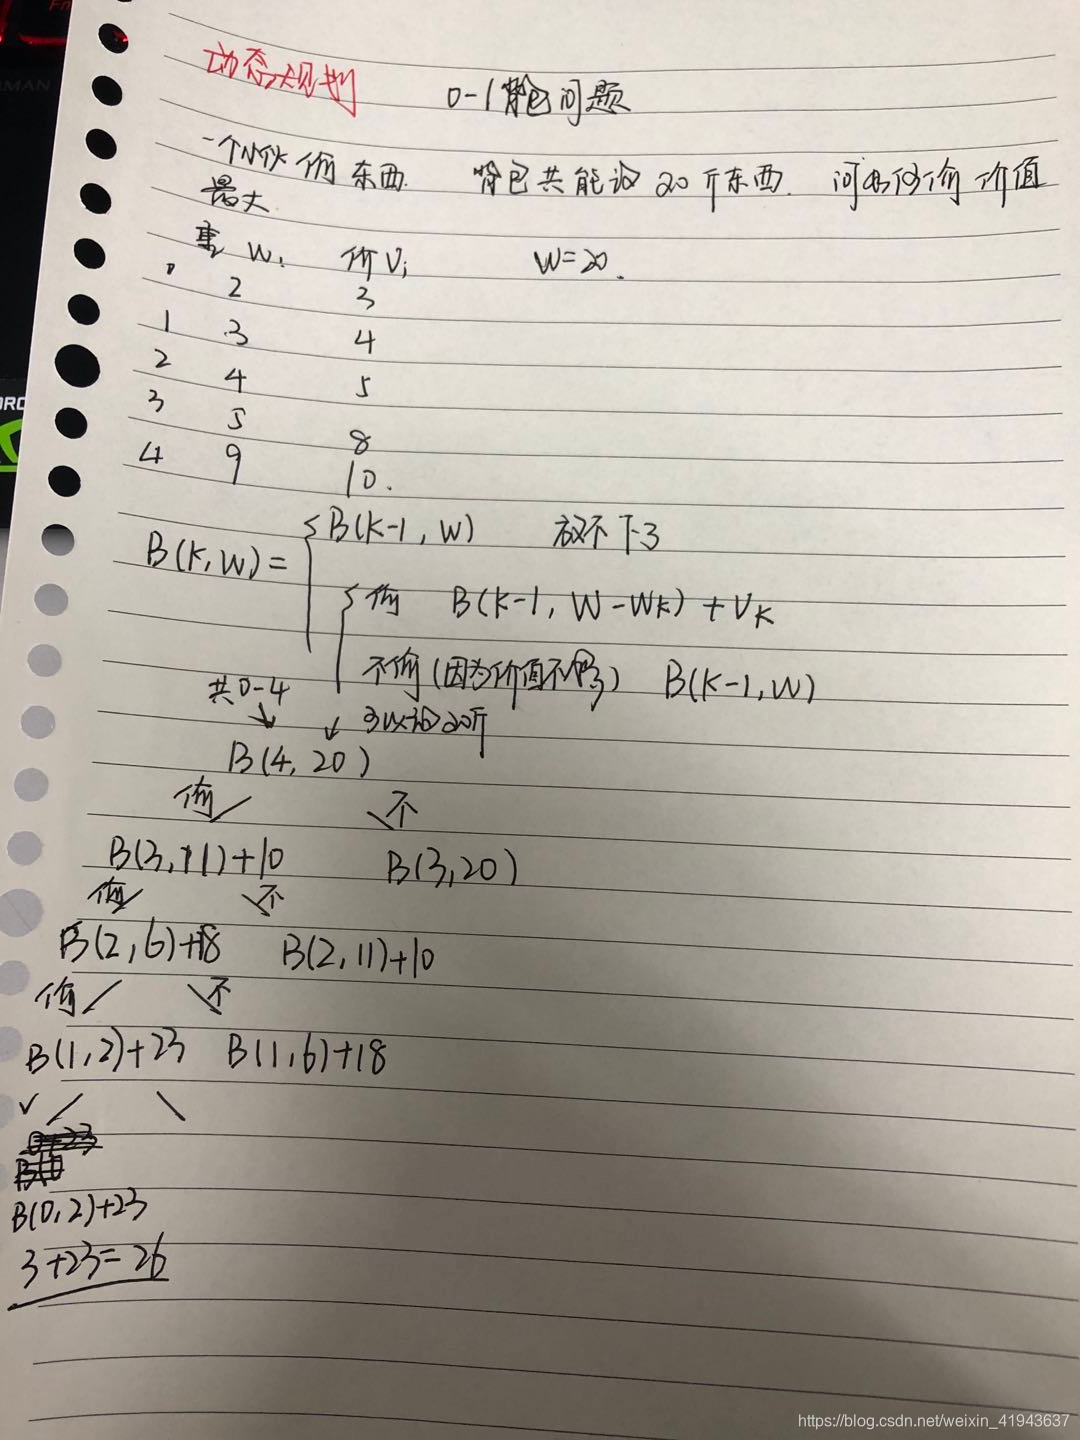 动态规划
0-1背包问题
一个小伙偷东西. 背包共能设20斤东西. 问如何偷价值
最大
重 Wi 价 Vi W=20.
0 2 3
1 3 4
2 4 5
3 5 8
4 9 10.
B(K,W)= B(K-1, W) 放不下了
偷 B(K-1, W-WK) + VK
不偷(因为价值不够) B(K-1,W)
共0-4
可以设20斤
B(4, 20)
偷 不
B(3,11)+10 B(3,20)
偷 不
B(2,6)+18 B(2,11)+10
偷 不
B(1,2)+23 B(1,6)+18
B(0,2)+23
3+23=26
https://blog.csdn.net/weixin_41943637